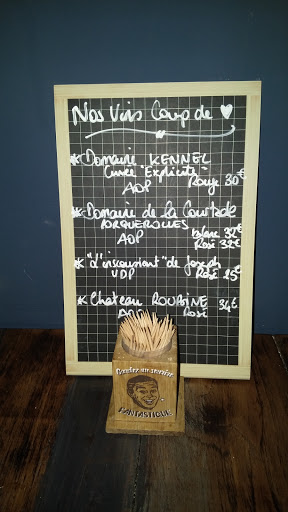 Nos Vins Coup de ♥
* Domaine KENNEL
Cuvée "Explicite"
AOP Rouge 30€
* Domaine de la Courtade
PORQUEROLLES Blanc 32€
AOP Rosé 32€
* "d'insouciant" de Joseph
VDP Rosé 25€
* Chateau ROUBINE 34€
AOP Rosé
Gardez un sourire
FANTASTIQUE